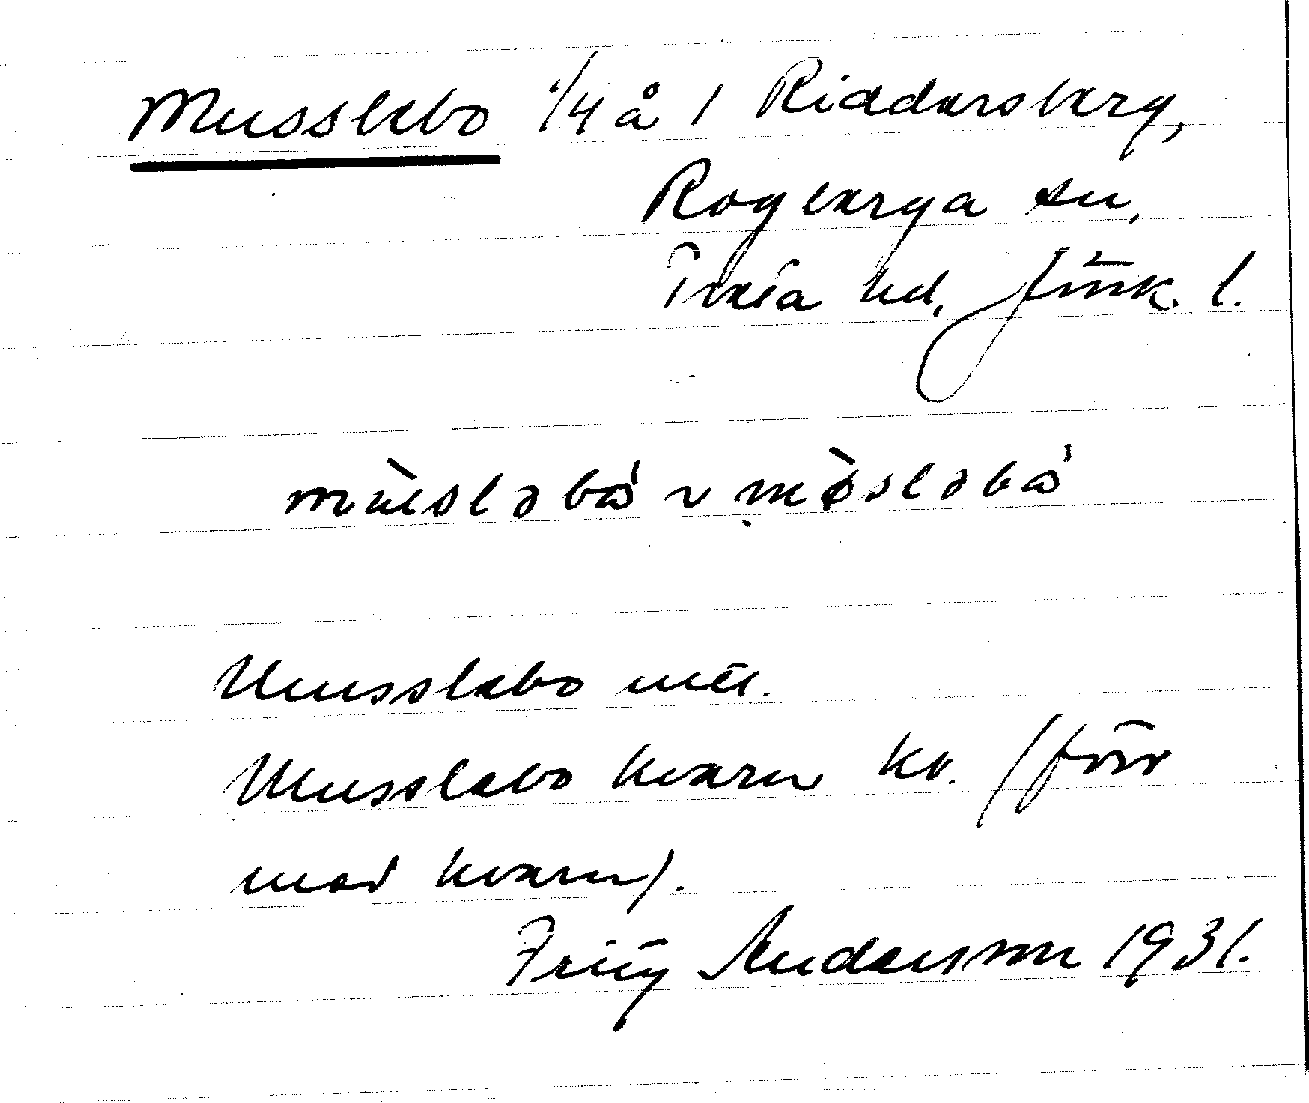 Musslebo 1/4 å 1 Riddersberg,
Rogberga sn,
Tveta hd, Jönk. l.
mùsləbå̀ ~ mø̀sləbå̀
Musslebo
Musslebo kvarn kv. (förr
med kvarn).
Frity Anderson 1931.